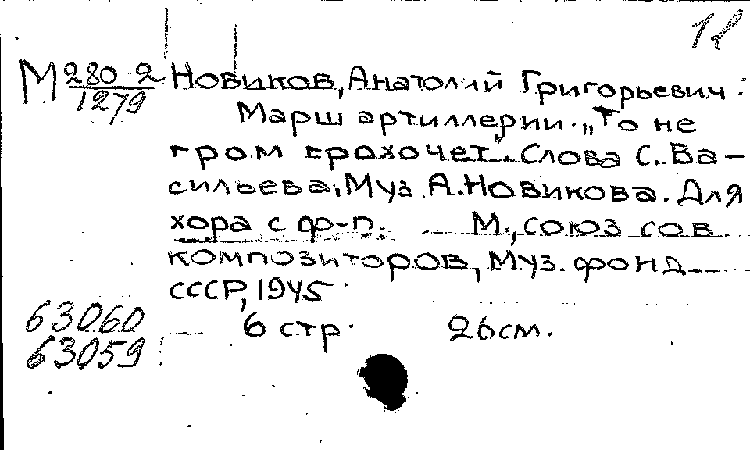 12
М 280-2 Новиков, Анатолий Григорьевич.
1279
Марш артиллерии. „То не
гром грохочет". Слова С. Ва-
сильева, Муз. А. Новикова. Для
хора с ф-п. М., союз сов.
композиторов, Муз. фонд
СССР, 1945.
63060 6 стр. 26см.
63059